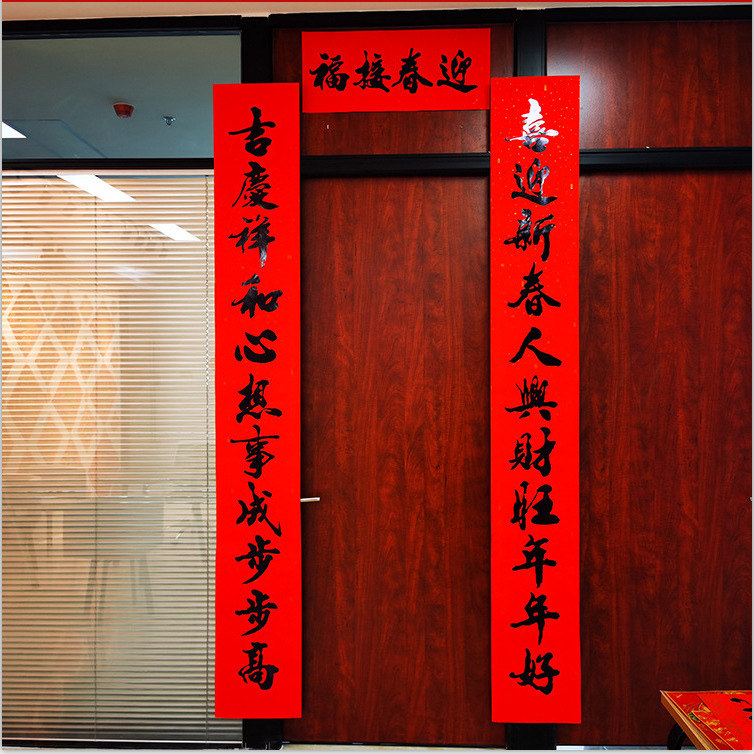 迎春接福
喜迎新春人興財旺年年好
吉慶祥和心想事成步步高